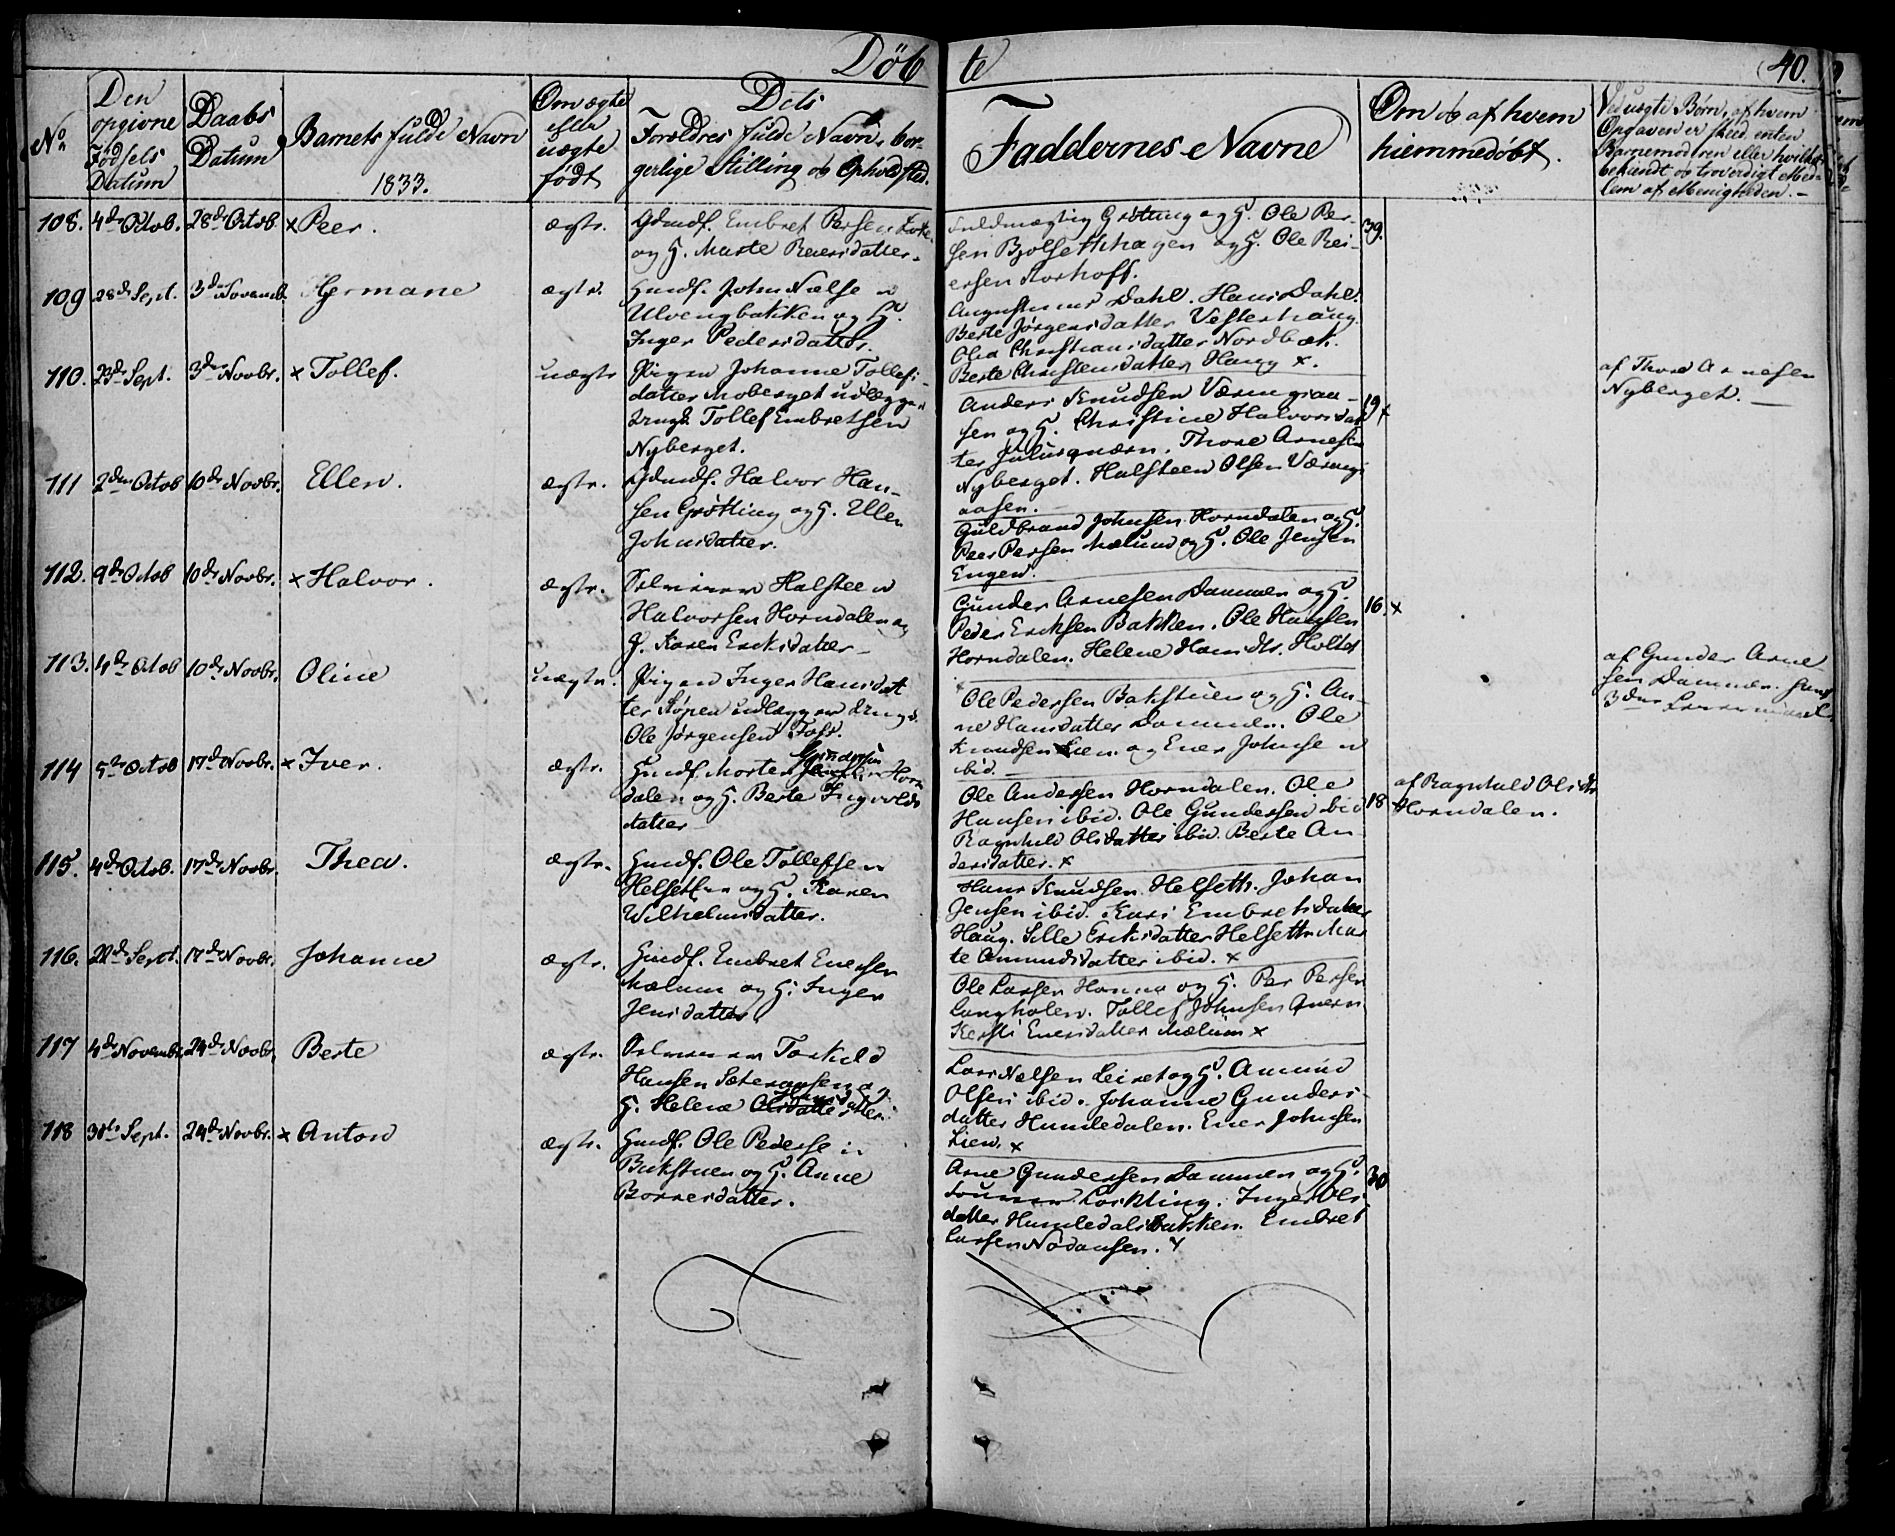 Döb te
40.
No
Den opgivne Fødsels Datum
Daabs Datum
Barnets fulde Navn
1833.
Om ægte eller uægte født
Dets Forældres fulde Navn, bor-
gerlige Stilling og Opholdsted.
Faddernes Navne
Om og af hvem
hiemmedøbt.
Ved uægte Børn, af hvem
Opgaven er skeed, enten
Barnemoderen eller hvilket
bekiendt og troværdigt Med-
lem af Menigheden.-
108. 4de Octob. 28de Octob. x Peer. ægte. Gdmdf. Embret Persen
og H. Marte Reiersdatter.
Fuldmægtig Grötting og H. Ole Per-
sen Bolsethhagen og H. Ole Rei-
ersen Storhoff.
39.
109 28de Sept. 3de Novemb. Hermane ægte. Huusf. John Nælsen
Ulvengbakken og H.
Inger Pedersdatter.
Augustinus Dahl. Hans Dahl.
Berte Jørgensdatter Vesterhaug
Olea Christiansdatter Nordbæk.
Berte Christensdatter Haug x.
110. 23de Sept. 3de Novbr. x Tollef. uægte Pigen Johanne Tollefs-
datter Moberget udlægger
Drengk Tollef Embretsen
Nyberget.
Anders Knudsen Værmgiaa-
sen og H. Christine Halvorsdat
ter Julusqværn. Thore Arnesen
Nyberget. Halsteen Olsen Værmgi
aasen.
19 x
af Thore Arnesen
Nyberget. —
111 2den Octob 10de Novbr. Ellen. ægte. Gdmdf. Halvor Han-
sen Grøtting og H. Ellen
Johnsdatter.
Guldbrand Johnsen Horndalen og H.
Peer Persen Mælum og H. Ole Jensen
Engen.
112. 9de Octob 10de Novbr. x Halvor. ægte. Selveier Halsteen
Halvorsen Horndalen og
H. Karen Ericksdatter
Gunder Arnesen Dammen og H.
Peder Ericksen Bakken. Ole Hansen
Horndalen. Helene Hansdtr. Holtet
16 x
113. 4de Octob 10de Novbr. Oline uægte. Pigen Inger Hansdat
ter Løpen udlægger Ungk.
Ole Jørgensen Toft.
Ole Pedersen Bakstuen og H. An-
ne Hansdatter Dammen. Ole
Knudsen Lien. og Ener Johnsen
ibid. —
af Gunder Arne
sen Dammen. hans
3die
114 5te Octob 17de Novbr. x Iver. ægte. Huusf. Morten Gundersen Horn
dalen og H. Berte Ingvolds
datter
Ole Andersen Horndalen. Ole
Hansen ibid. Ole Gundersen ibid
Ragnhild Olsdatter ibid Berte An-
dersdatter. x
18
af Ragnhild Olsdtr
Horndalen.
115. 4de Octob. 17de Novbr. Thea. ægte. Huusf. Ole Tollefsen
Helseth og H. Karen
Wilhelmsdatter.
Hans Knudsen Helseth. Johan
Jensen ibid. Kari Embretsdatter
Haug. Sille Ericksdatter Helseth. Mar
te Amundsdatter ibid. x
116. 22de Sept. 17de Novbr. Johanne ægte. Huusf. Embret Enersen
Mælum og H. Inger
Jensdatter
Ole Larsen Horne og H. Per Persen
Langholen. Tollef Johnsen Qvern
Kersti Enersdatter Mælum x
117 4de Novemb. 24de Novbr. Berte ægte. Selveier Torkild
Hansen Sæteraasen og
H. Helene Olsdatter
Lars Nælsen Leiret og H. Amund
Olsen ibid. Johanne Gunders-
datter Humledalen. Ener Johnsen
Lien. x
118 30te Sept. 24de Novbr. x Anton ægte. Huusf. Ole Pedersen
Bakstuen og H. Anne
Borresdatter.
Arne Gundersen Dammen og H.
Inger Ols-
datter Humledalsbakken. Embret
Larsen Nødaasen. x
30